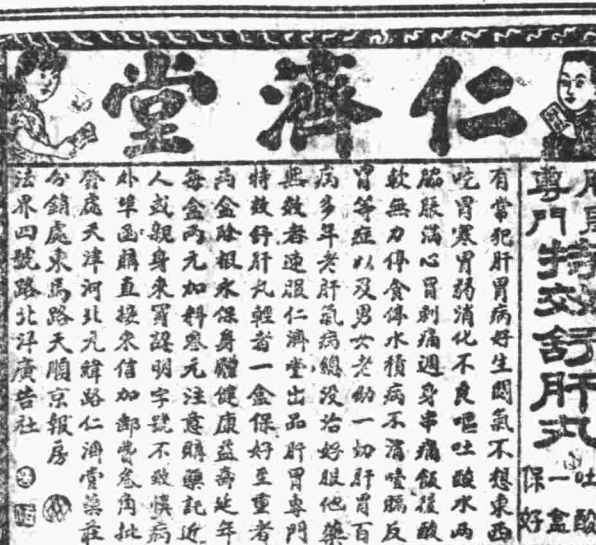 仁濟堂
專門特效舒肝丸
吐酸
一盒
保好
有常犯肝胃病好生悶氣不想東西
吃胃寒胃弱消化不良嘔吐酸水兩
脇脹滿心胃刺痛週身串痛飯後酸
軟無力停食停水積病不消噎膈反
胃等症以及男女老幼一切肝胃百
病多年老肝氣病總沒治好服他藥
無效者速服仁濟堂出品肝胃專門
特效舒肝丸輕者一盒保好至重者
兩盒除根永保身體健康益壽延年
每盒兩元加料叁元注意購藥記近
人或親身來買認明字號不致悞病
外埠函購直接來信加郵費叁角批
發處天津河北元緯路仁濟堂藥莊
分銷處東馬路天順京報房
法界四號路北洋廣告社